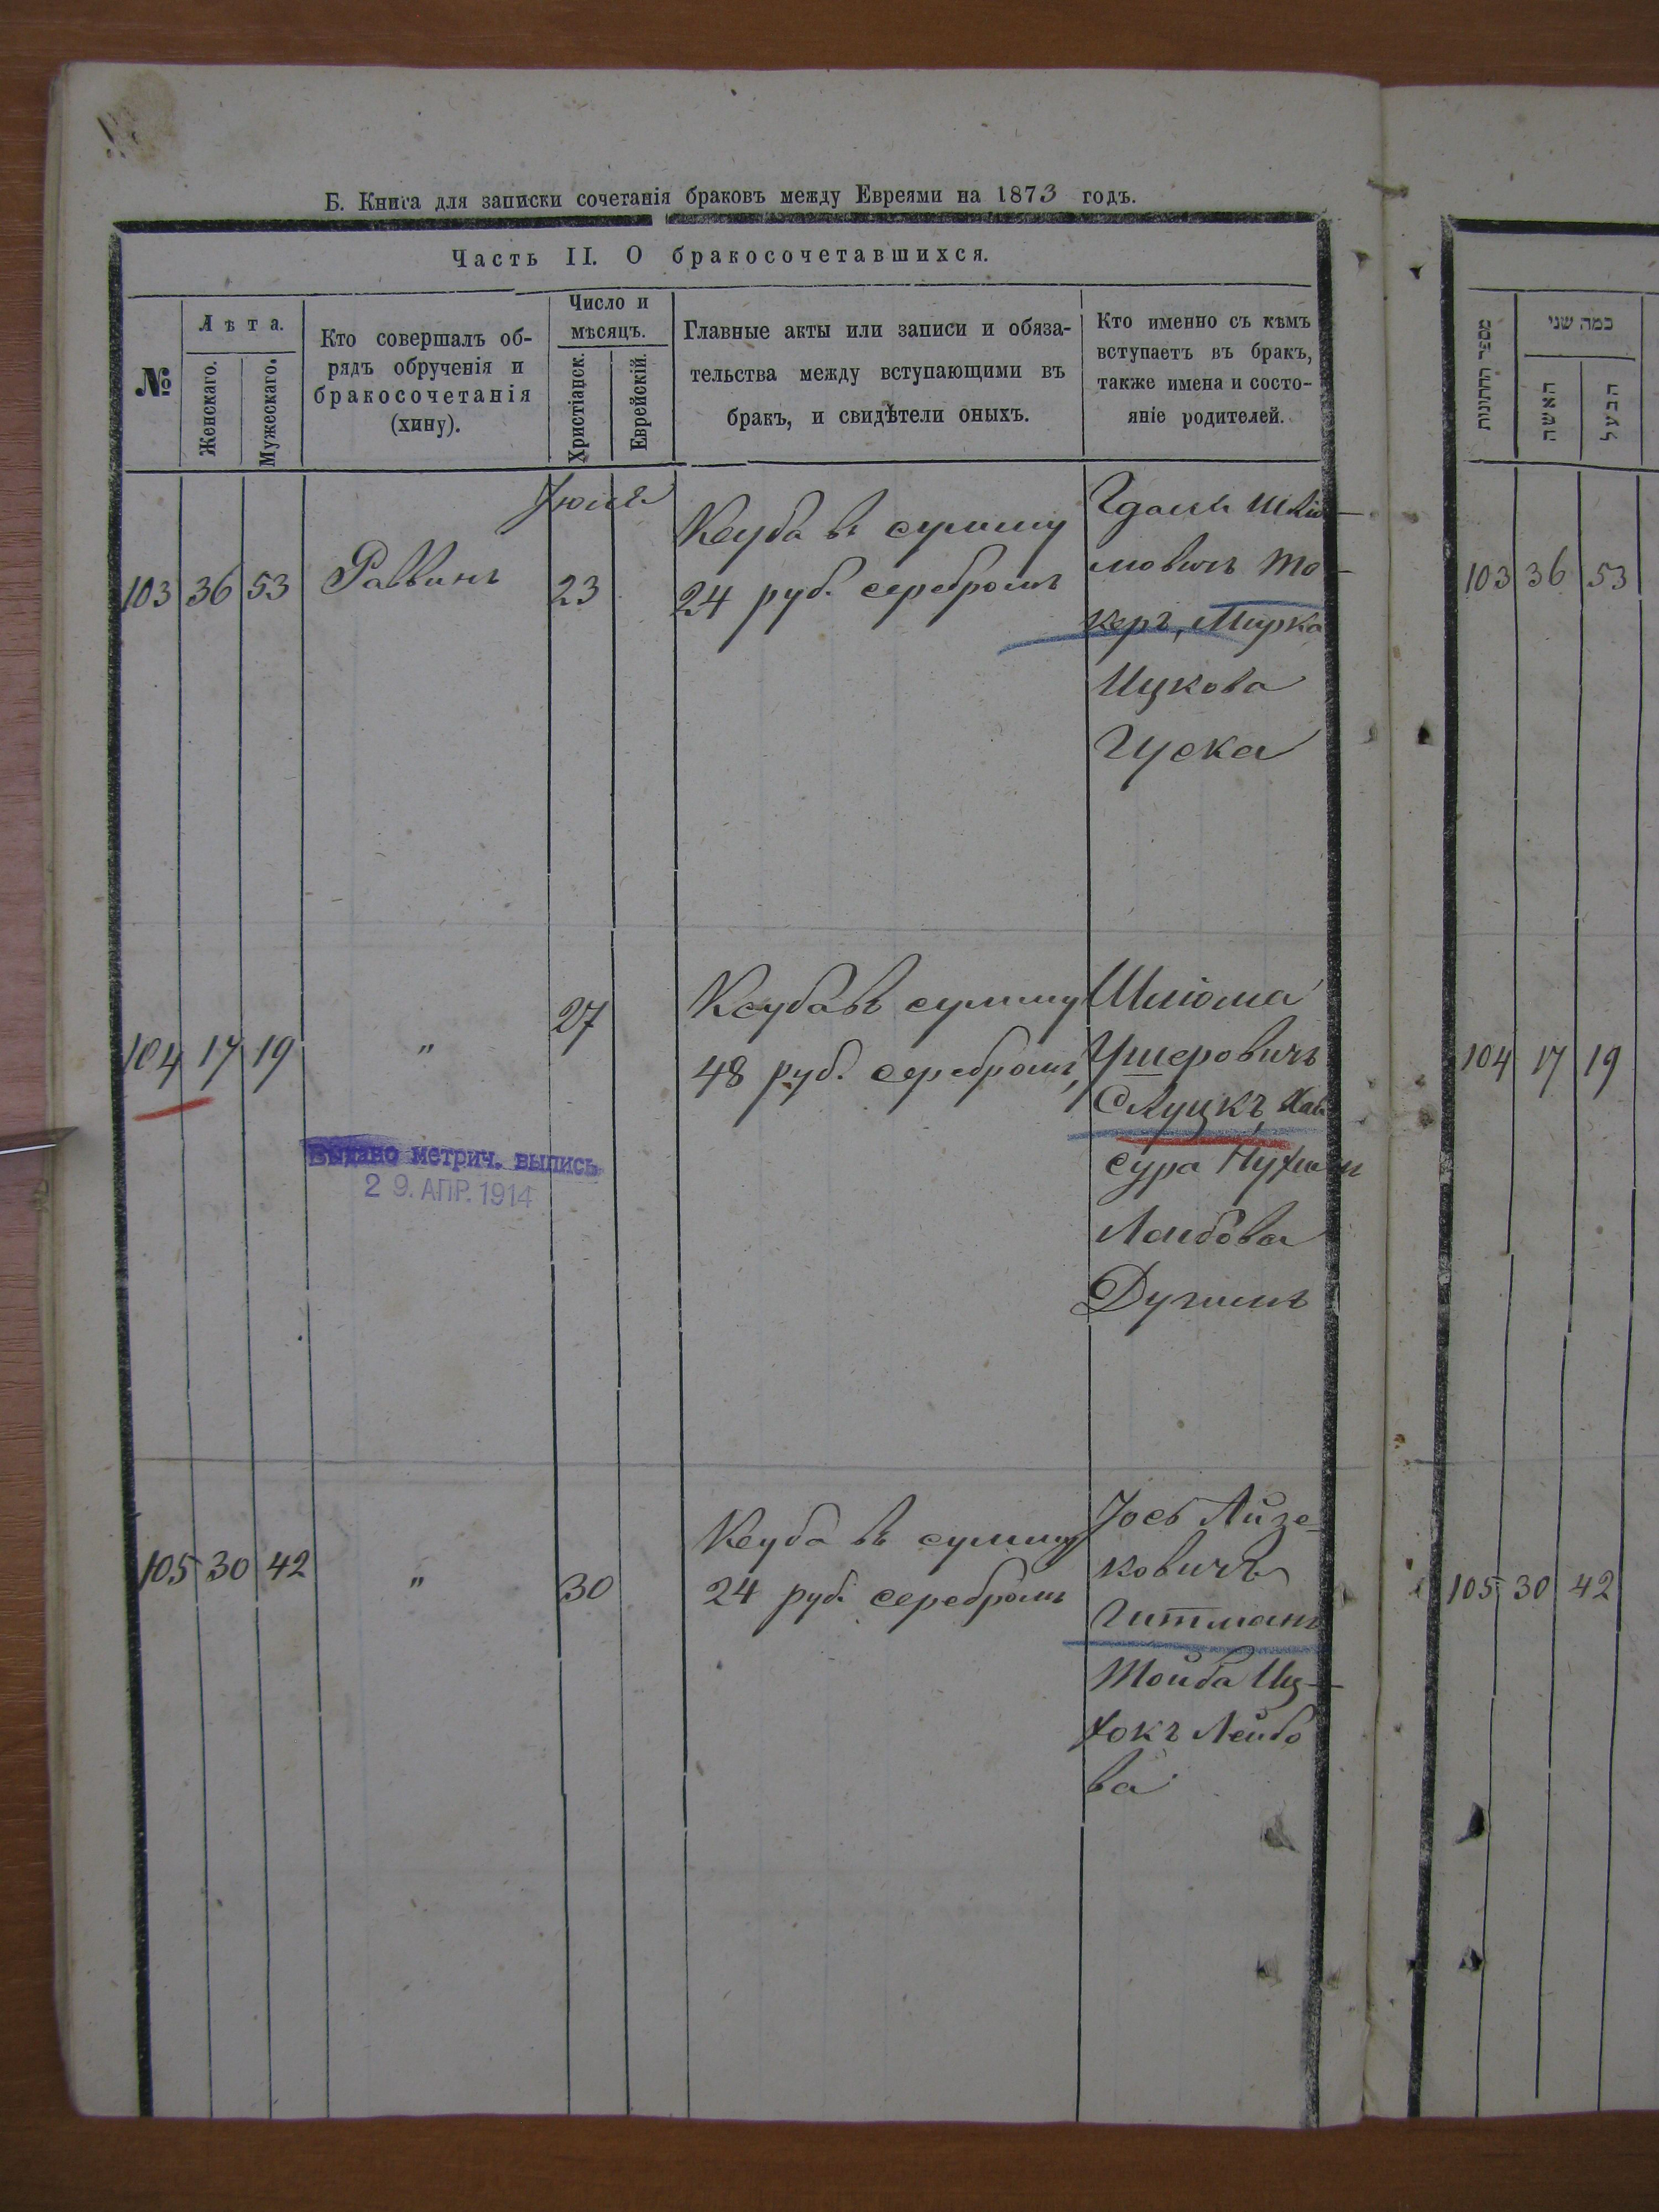 Б. Книга для записки сочетанія браковъ между Евреями на 1873 годъ.
Часть II. О бракосочетавшихся.
№
Лѣта.
Женскаго.
Мужескаго.
Кто совершалъ об-
рядъ обрученія и
бракосочетанія
(хину).
Число и
мѣсяцъ.
Христіанск.
Еврейскій.
Главные акты или записи и обяза-
тельства между вступающими въ
бракъ, и свидѣтели оныхъ.
Кто именно съ кѣмъ
вступаетъ въ бракъ,
также имена и состо-
яніе родителей.
Іюля
103 36 53 Раввинъ 23
Ксуба въ сумму
24 руб. серебромъ
Гдаль Шлио-
мовичъ То-
керъ, Мирка
Ицкова
Гуска
104 17 19 " 27
Ксуба въ сумму
48 руб. серебромъ,
Шліома
Ушеровичъ
Слуцкъ,
сура
Лейбова
Выдано метрич. выпись
29. АПР. 1914
105 30 42 " 30
Ксуба въ сумму
24 руб. серебромъ
Іось Айзе-
ковичъ
Гитманъ
Тойба Иц-
хокъ Лейбо
ва
מספר החתונות
כמה שני
האשה
הבעל
103 36 53
104 17 19
105 30 42